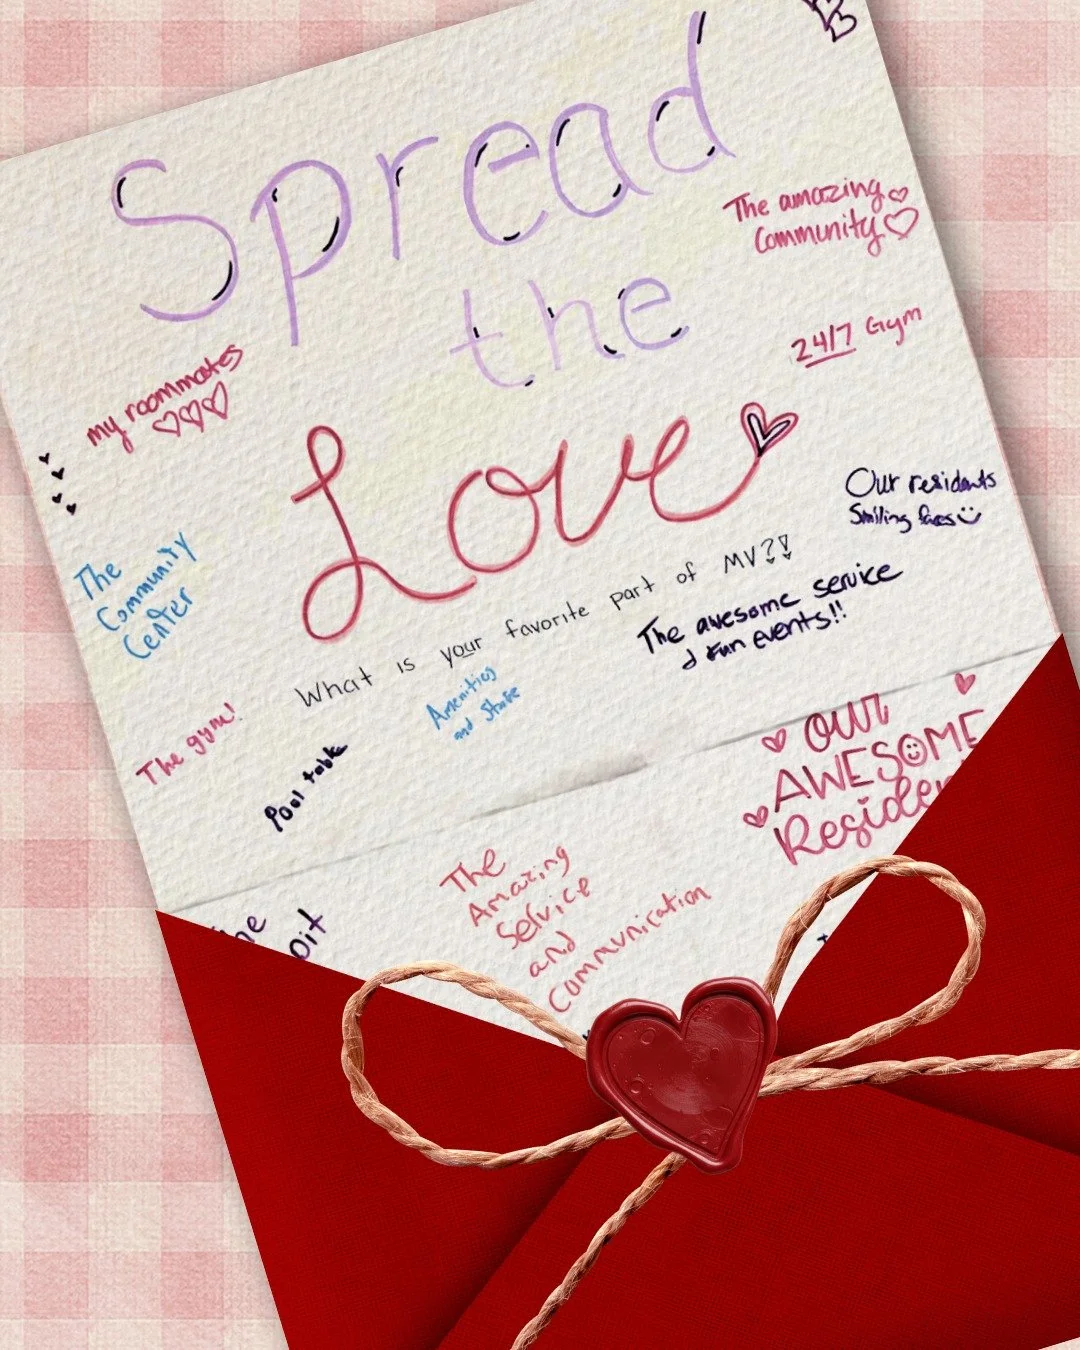 Spread
the
Love
The amazing
Community
24/7 Gym
my roommates
Our residents
Smiling faces
The
Community
Center
What is your favorite part of MV?!
The awesome service
& Fun events!!
Amenities
and Staff
The gym!
Pool table
our
AWESOME
The
Amazing
Service
and
Communication